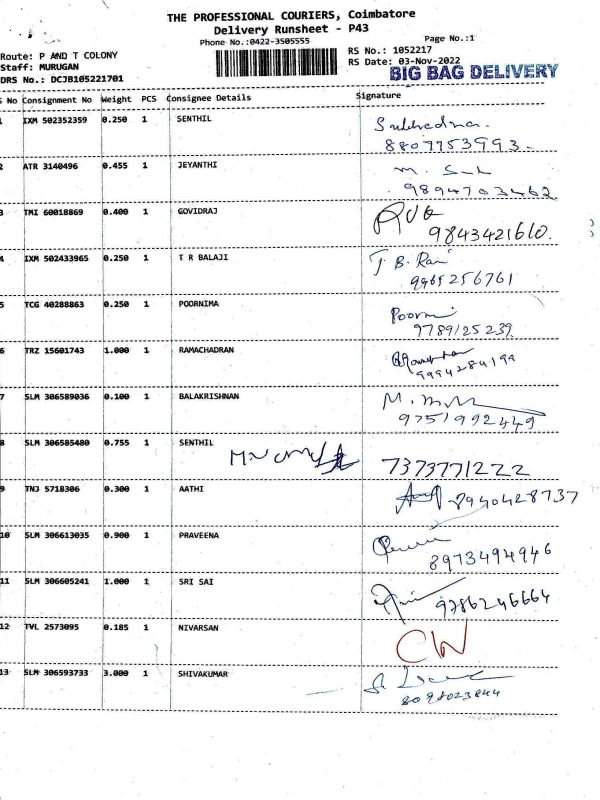 THE PROFESSIONAL COURIERS, Coimbatore
Delivery Runsheet - P43
Phone No.:0422-3505555
Page No.:1
Route: P AND T COLONY
RS No.: 1052217
Staff: MURUGAN
RS Date: 03-Nov-2022
DRS No.: DCJB105221701
BIG BAG DELIVERY
S No Consignment No Weight PCS Consignee Details Signature
1 IXM 502352359 0.250 1 SENTHIL
8807753993
2 ATR 3140496 0.455 1 JEYANTHI
9894703462
3 TMI 60018869 0.400 1 GOVIDRAJ
9843421610.
4 IXM 502433965 0.250 1 T R BALAJI T B. Rani
9965256761
5 TCG 40288863 0.250 1 POORNIMA Poorni
9789125239
6 TRZ 15601743 1.000 1 RAMACHADRAN
9994284199
7 SLM 306589036 0.100 1 BALAKRISHNAN
9751992449
8 SLM 306585480 0.755 1 SENTHIL 7373771222
9 TNJ 5718306 0.300 1 AATHI 8940428737
10 SLM 306613035 0.900 1 PRAVEENA
8973494946
11 SLM 306605241 1.000 1 SRI SAI
9786246664
12 TVL 2573095 0.185 1 NIVARSAN
13 SLM 306593733 3.000 1 SHIVAKUMAR
8098023844